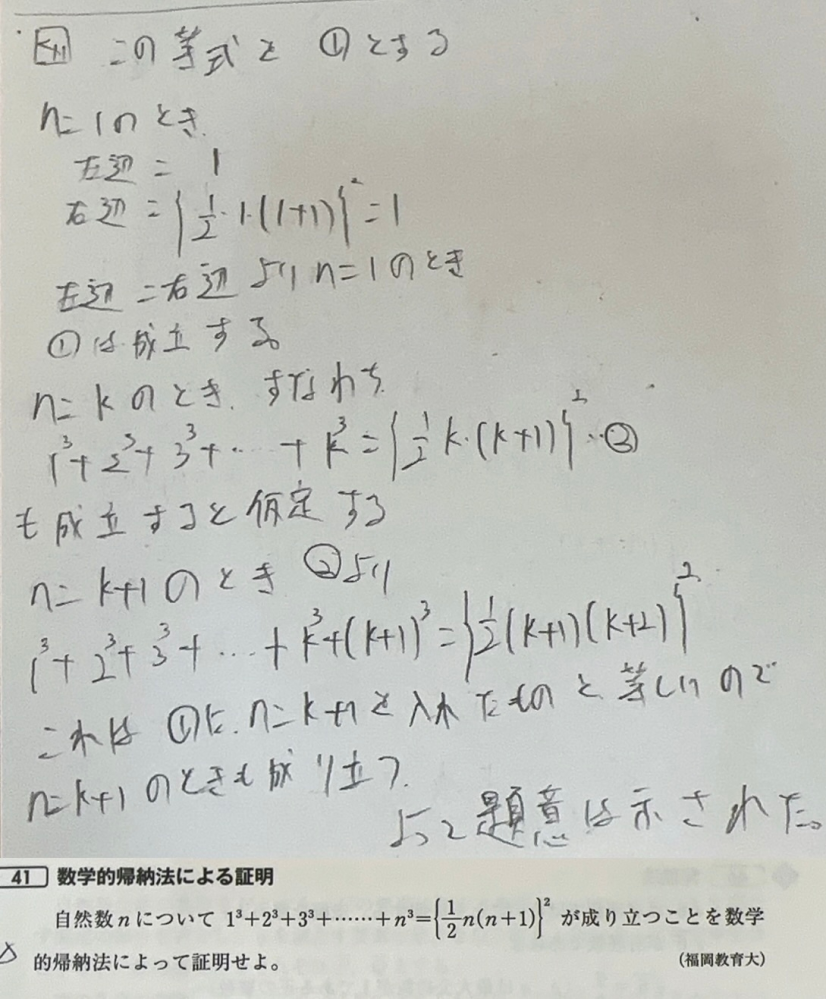 k+1 この等式を ①とする
n=1のとき.
左辺 = 1
右辺 = {1/2・1・(1+1)}² = 1
左辺=右辺 より n=1のとき
①は成立する。
n=kのとき. すなわち
1³+2³+3³+…+k³={1/2 k・(k+1)}²…②
も成立すると仮定する
n=k+1のとき ②より
1³+2³+3³+…+k³+(k+1)³={1/2(k+1)(k+2)}²
これは ①に. n=k+1を入れたものと等しいので
n=k+1のときも成り立つ.
よって題意は示された。
41 数学的帰納法による証明
自然数nについて 1³+2³+3³+……+n³={1/2 n(n+1)}² が成り立つことを数学
的帰納法によって証明せよ。 (福岡教育大)